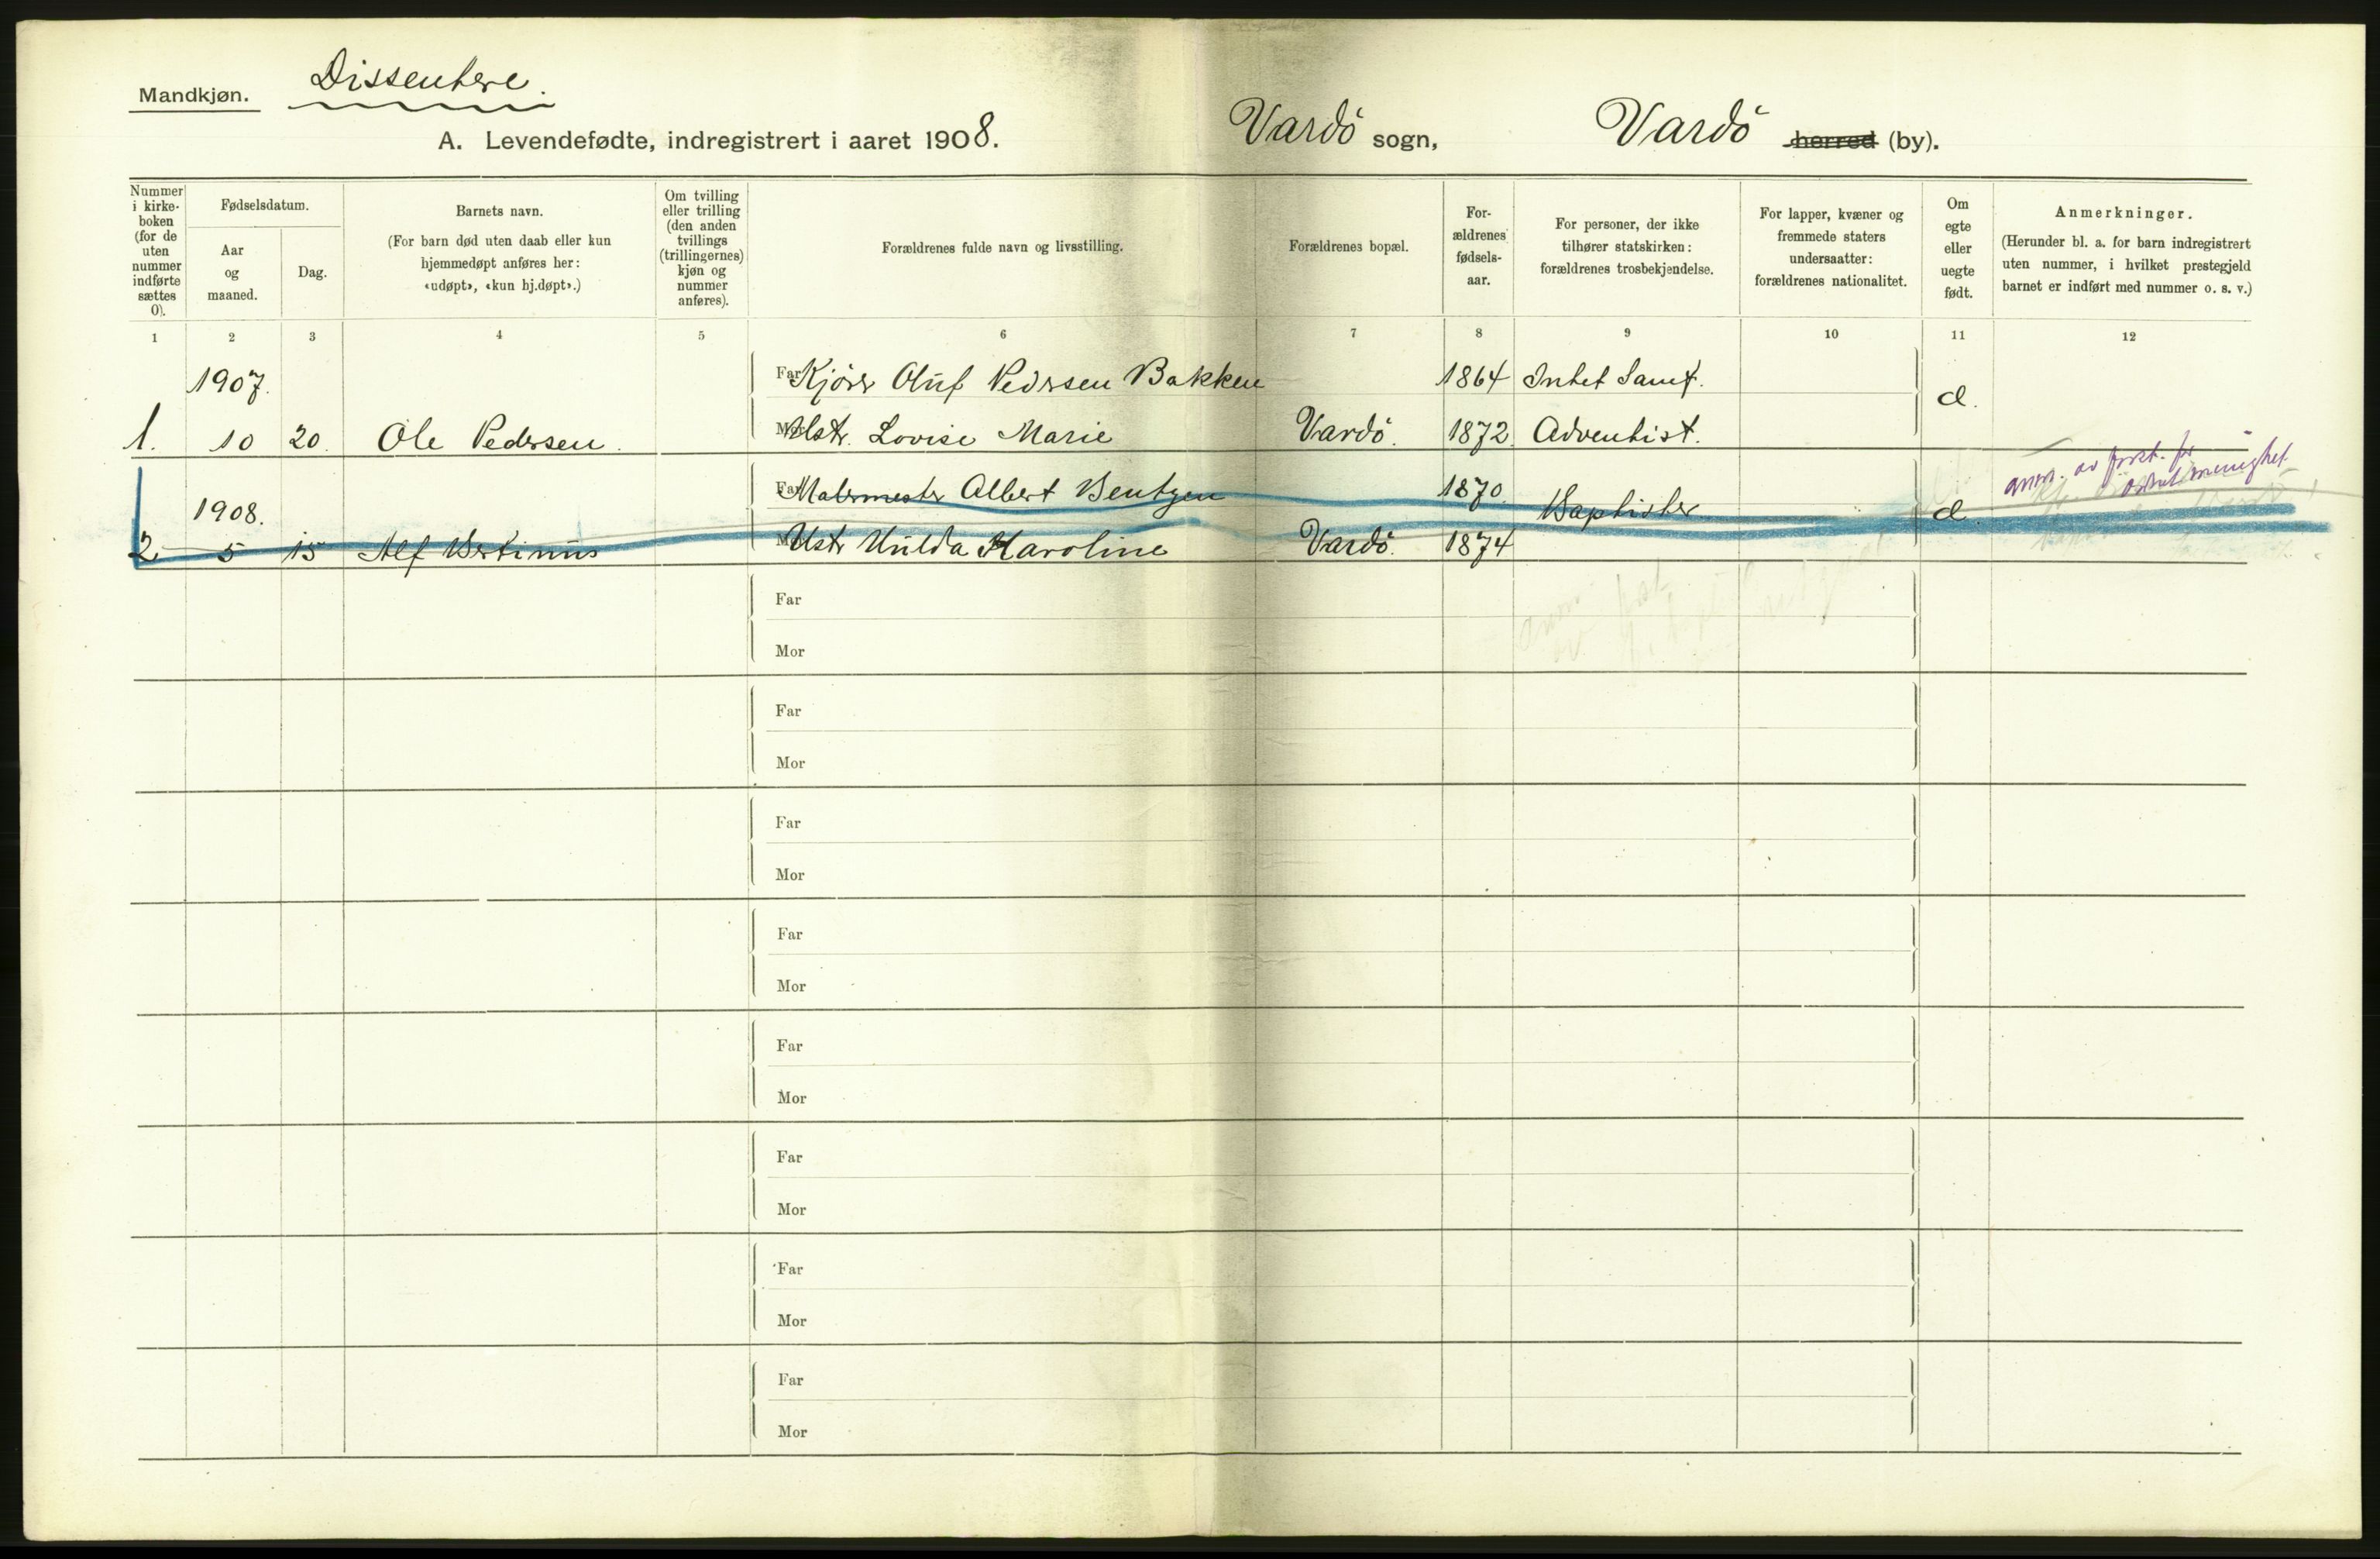 Mandkjøn.
Dissentere.
A. Levendefødte, indregistrert i aaret 1908.
Vardö sogn,
Vardö herred (by).
Nummer i kirkeboken (for de uten nummer indførte sættes 0).
Fødselsdatum.
Aar og maaned.
Dag.
Barnets navn.
(For barn død uten daab eller kun hjemmedøpt anføres her: «udøpt», «kun hj.døpt».)
Om tvilling eller trilling (den anden tvillings (trillingernes) kjøn og nummer anføres).
Forældrenes fulde navn og livsstilling.
Forældrenes bopæl.
Forældrenes fødselsaar.
For personer, der ikke tilhører statskirken: forældrenes trosbekjendelse.
For lapper, kvæner og fremmede staters undersaatter: forældrenes nationalitet.
Om egte eller uegte født.
Anmerkninger.
(Herunder bl. a. for barn indregistrert uten nummer, i hvilket prestegjeld barnet er indført med nummer o. s. v.)
1 2 3 4 5 6 7 8 9 10 11 12
1907. Far Kjører Oluf Pedersen Bakken 1864 Intet Samf.
1. 10 20. Ole Pedersen. Mor Ustr. Lovise Marie Vardö. 1872. Adventist. d.
1908. Far Malermester Albert Bentzen 1870 Baptister d
anm. av forst. for
2 5 15 Alf Bertinus Mor Ustr Hulda Karoline Vardö. 1874
Far
Mor
Far
Mor
Far
Mor
Far
Mor
Far
Mor
Far
Mor
Far
Mor
Far
Mor